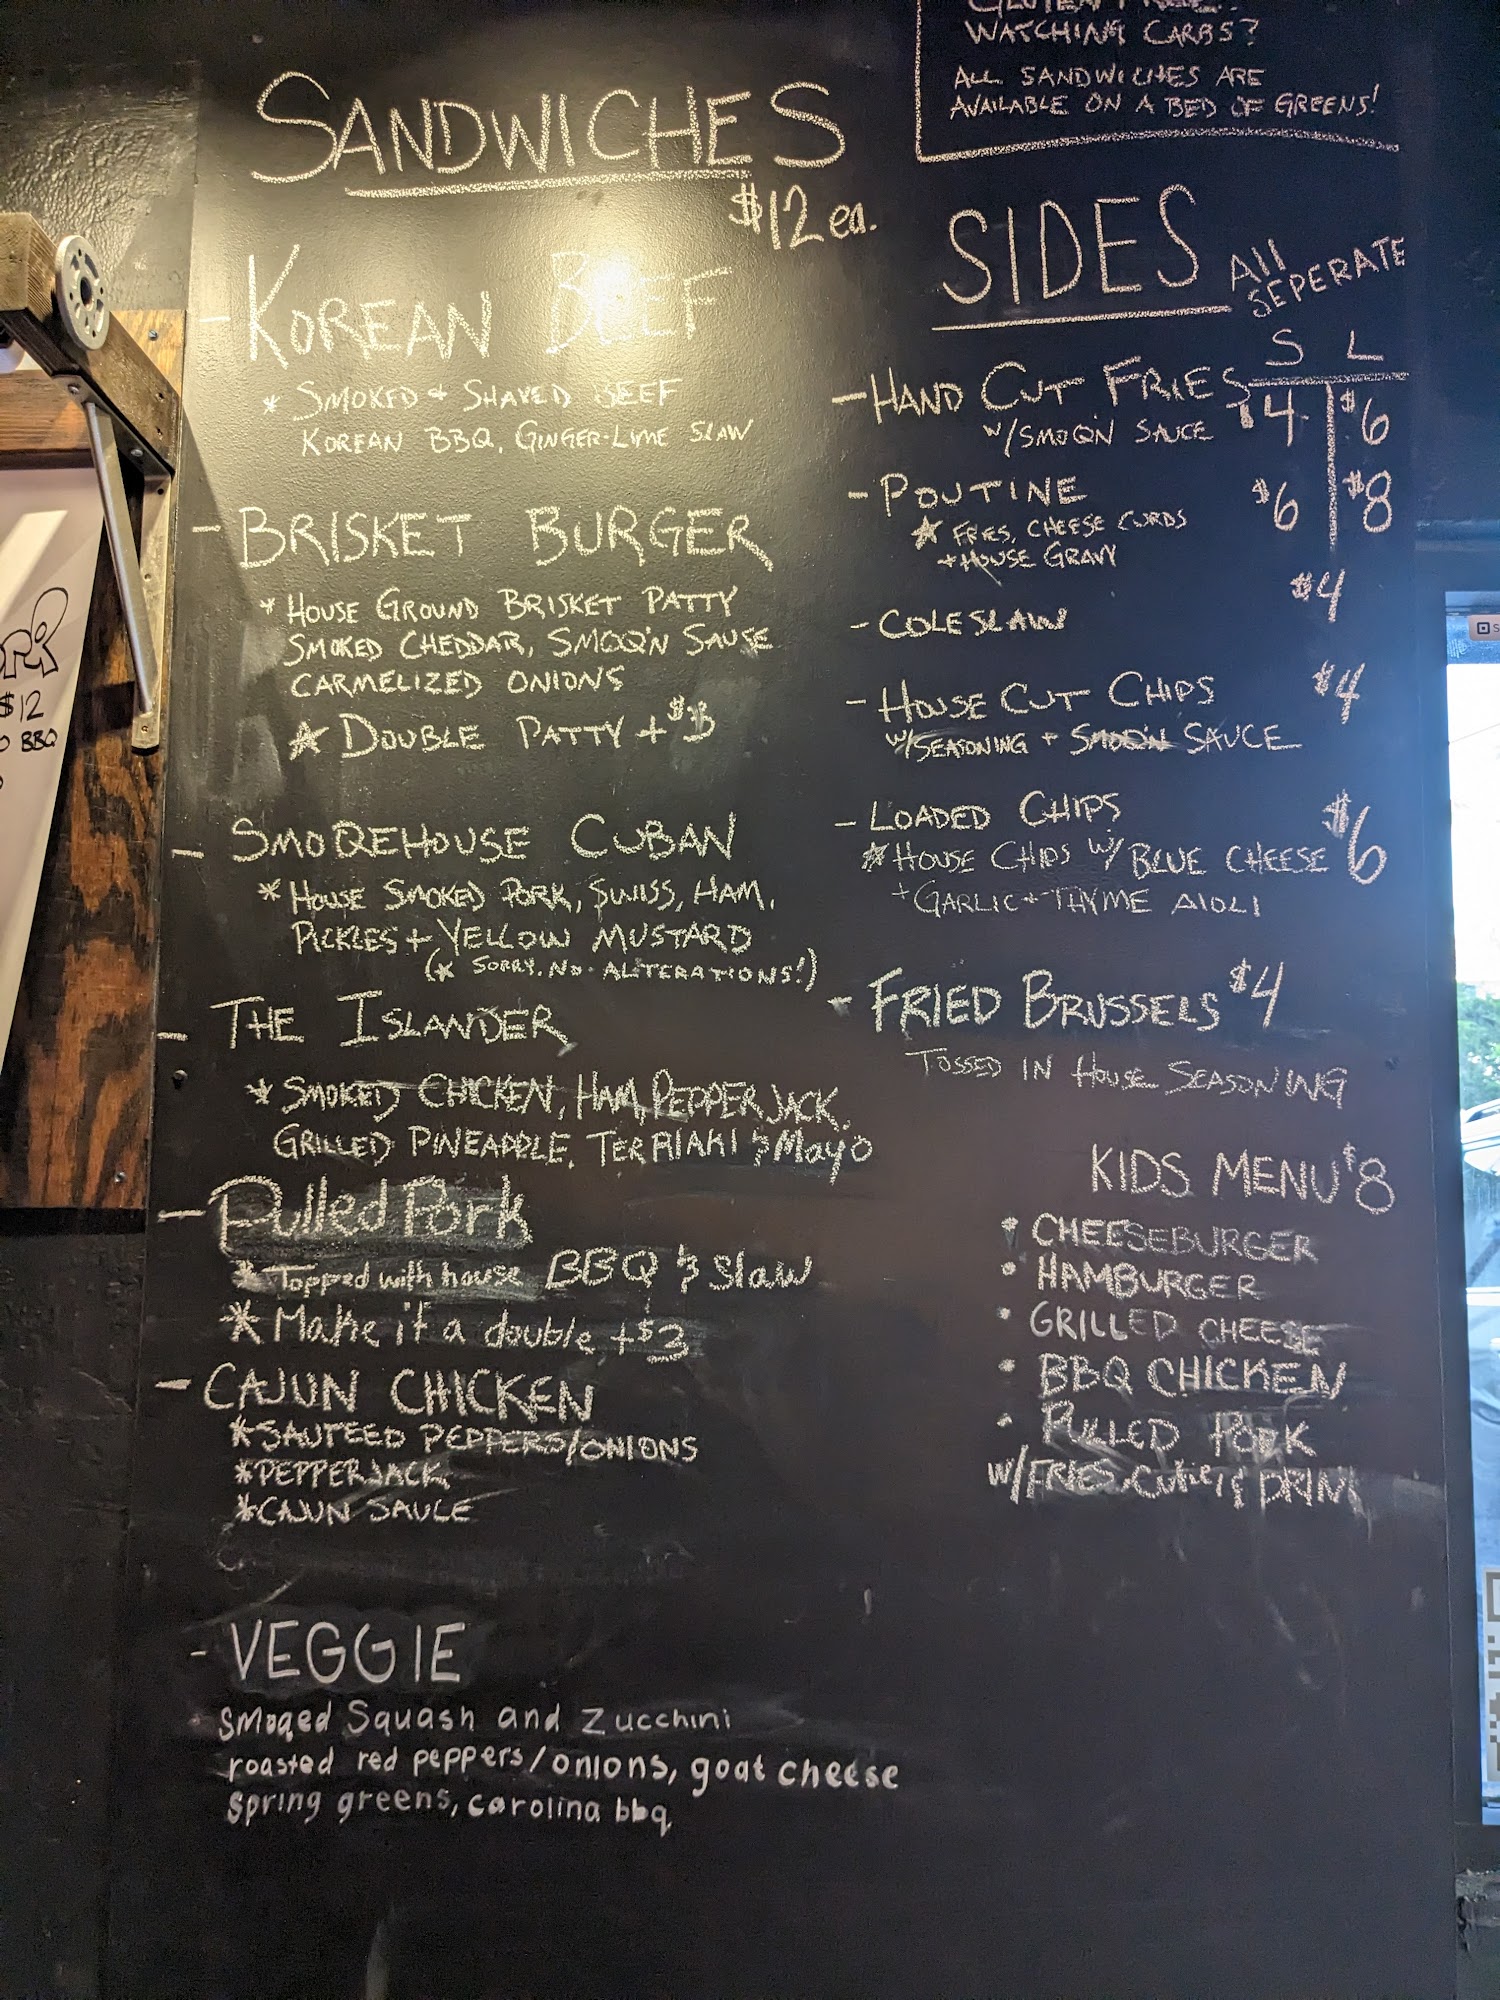 WATCHING CARBS?
ALL SANDWICHES ARE
AVAILABLE ON A BED OF GREENS!
SANDWICHES
$12 ea.
- KOREAN BEEF
* SMOKED + SHAVED BEEF
KOREAN BBQ, GINGER-LIME SLAW
- BRISKET BURGER
* HOUSE GROUND BRISKET PATTY
SMOKED CHEDDAR, SMOQ'N SAUSE
CARMELIZED ONIONS
* DOUBLE PATTY + $3
- SMOQEHOUSE CUBAN
* HOUSE SMOKED PORK, SWISS, HAM,
PICKLES + YELLOW MUSTARD
(* SORRY. NO. ALTERATIONS!)
- THE ISLANDER
* SMOKED CHICKEN, HAM, PEPPER JACK,
GRILLED PINEAPPLE, TERRIAKI & Mayo
- Pulled Pork
* Topped with house BBQ & Slaw
* Make it a double +$3
- CAJUN CHICKEN
* SAUTEED PEPPERS/ONIONS
* PEPPERJACK
* CAJUN SAUCE
- VEGGIE
smoqed Squash and Zucchini
roasted red peppers/onions, goat cheese
spring greens, carolina bbq
SIDES
All
SEPERATE
S L
- HAND CUT FRIES $4 $6
w/SMOQ'N SAUCE
- POUTINE $6 $8
* FRIES, CHEESE CURDS
+ HOUSE GRAVY
- COLESLAW $4
- HOUSE CUT CHIPS $4
w/SEASONING + SMOQ'N SAUCE
- LOADED CHIPS $6
* HOUSE CHIPS w/ BLUE CHEESE
+ GARLIC + THYME AIOLI
* FRIED BRUSSELS $4
TOSSED IN HOUSE SEASONING
KIDS MENU $8
• CHEESEBURGER
• HAMBURGER
• GRILLED CHEESE
• BBQ CHICKEN
• PULLED PORK
w/FRIES, cutie & DRINK
$12
BBQ